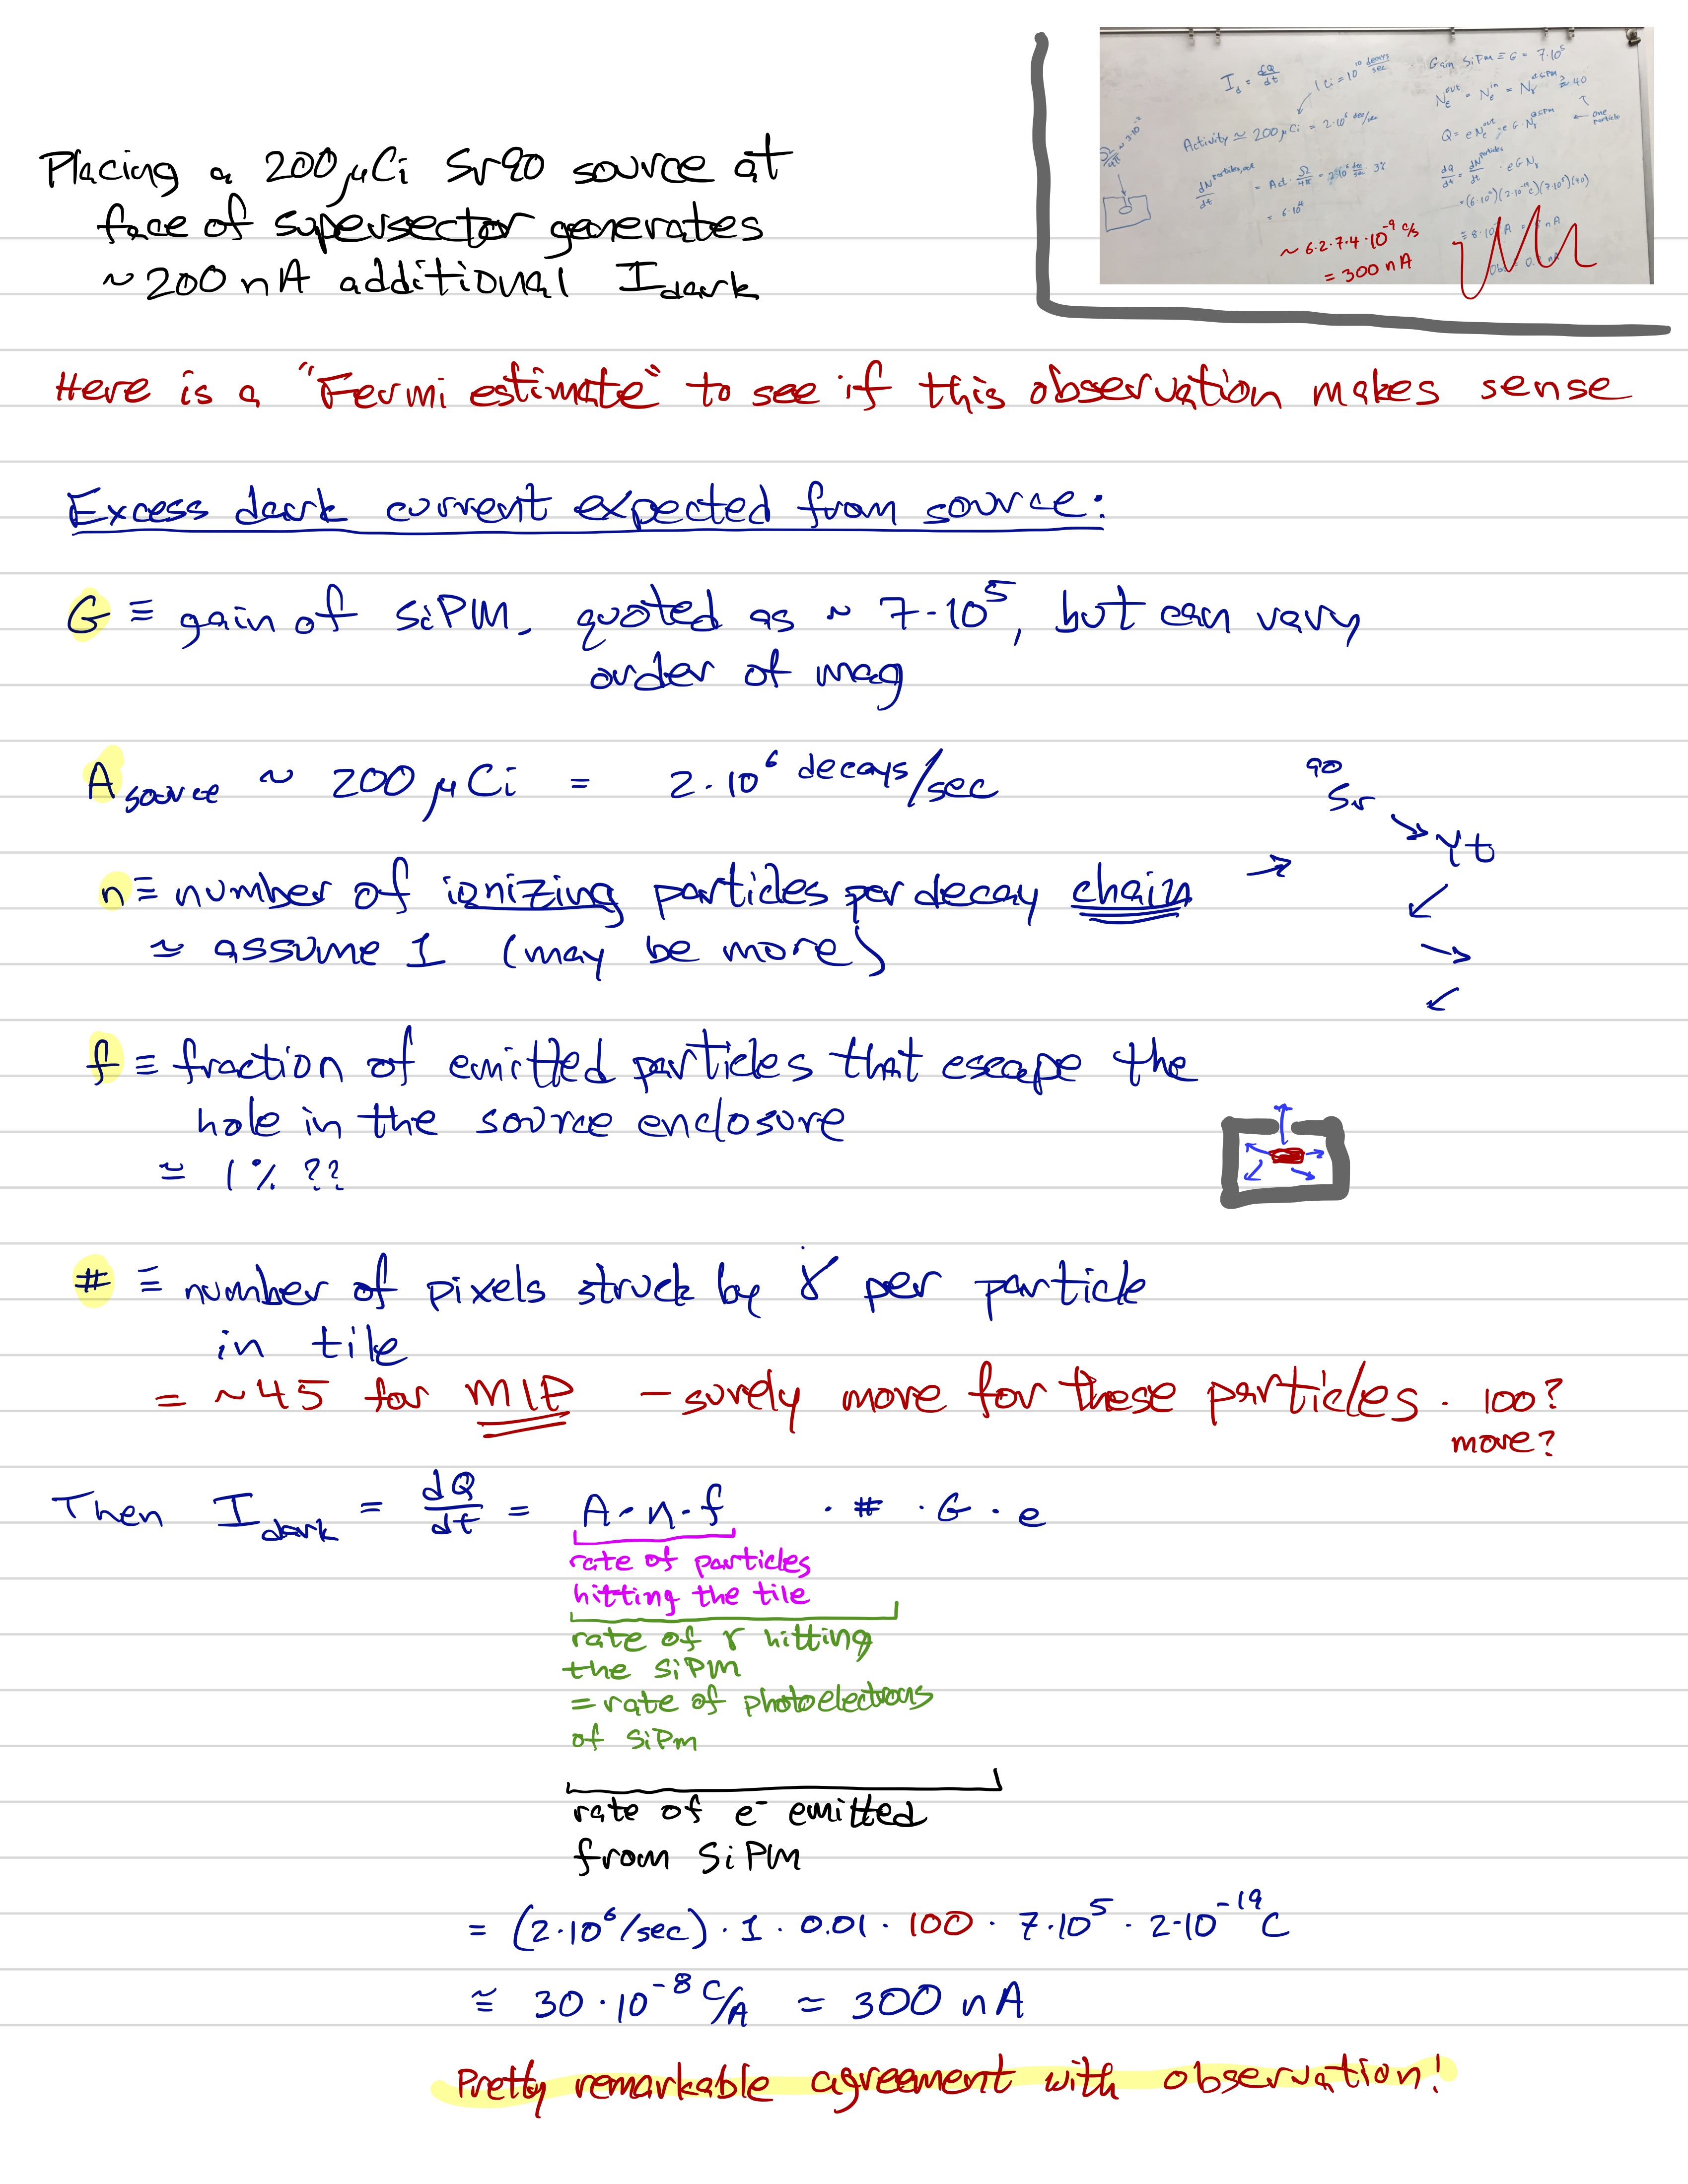 Placing a 200 μCi Sr90 source at
face of supersector generates
~200 nA additional I_dark
I_d = dQ/dt
1 Ci = 10^10 decays/sec
Activity ≃ 200 μCi = 2·10^6 dec/sec
= 6·10^4
~ 6·2·7·4·10^-9 C/s
= 300 nA
Gain SiPM ≡ G = 7·10^5
one particle
Here is a "Fermi estimate" to see if this observation makes sense
Excess dark current expected from source:
G ≡ gain of SiPM, quoted as ~ 7·10^5, but can vary
order of mag
A_source ~ 200 μCi = 2·10^6 decays/sec
90Sr
→ Yt
n ≡ number of ionizing particles per decay chain →
≈ assume 1 (may be more)
f ≡ fraction of emitted particles that escape the
hole in the source enclosure
≈ 1% ??
# ≡ number of pixels struck by γ per particle
in tile
= ~45 for MIP - surely more for these particles. 100?
more?
Then I_dark = dQ/dt = A·n·f · # · G · e
rate of particles
hitting the tile
rate of γ hitting
the SiPM
= rate of photoelectrons
of SiPM
rate of e⁻ emitted
from SiPM
= (2·10^6/sec) · 1 · 0.01 · 100 · 7·10^5 · 2·10^-19 C
≅ 30·10^-8 C/A ≈ 300 nA
Pretty remarkable agreement with observation!